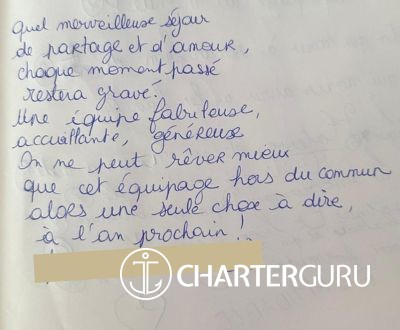 Quel merveilleuse séjour
de partage et d'amour,
chaque moment passé
restera gravé.
Une équipe fabuleuse,
accueillante, généreuse
On ne peut rêver mieux
que cet équipage hors du commun
alors une seule chose à dire,
à l'an prochain !
CHARTERGURU